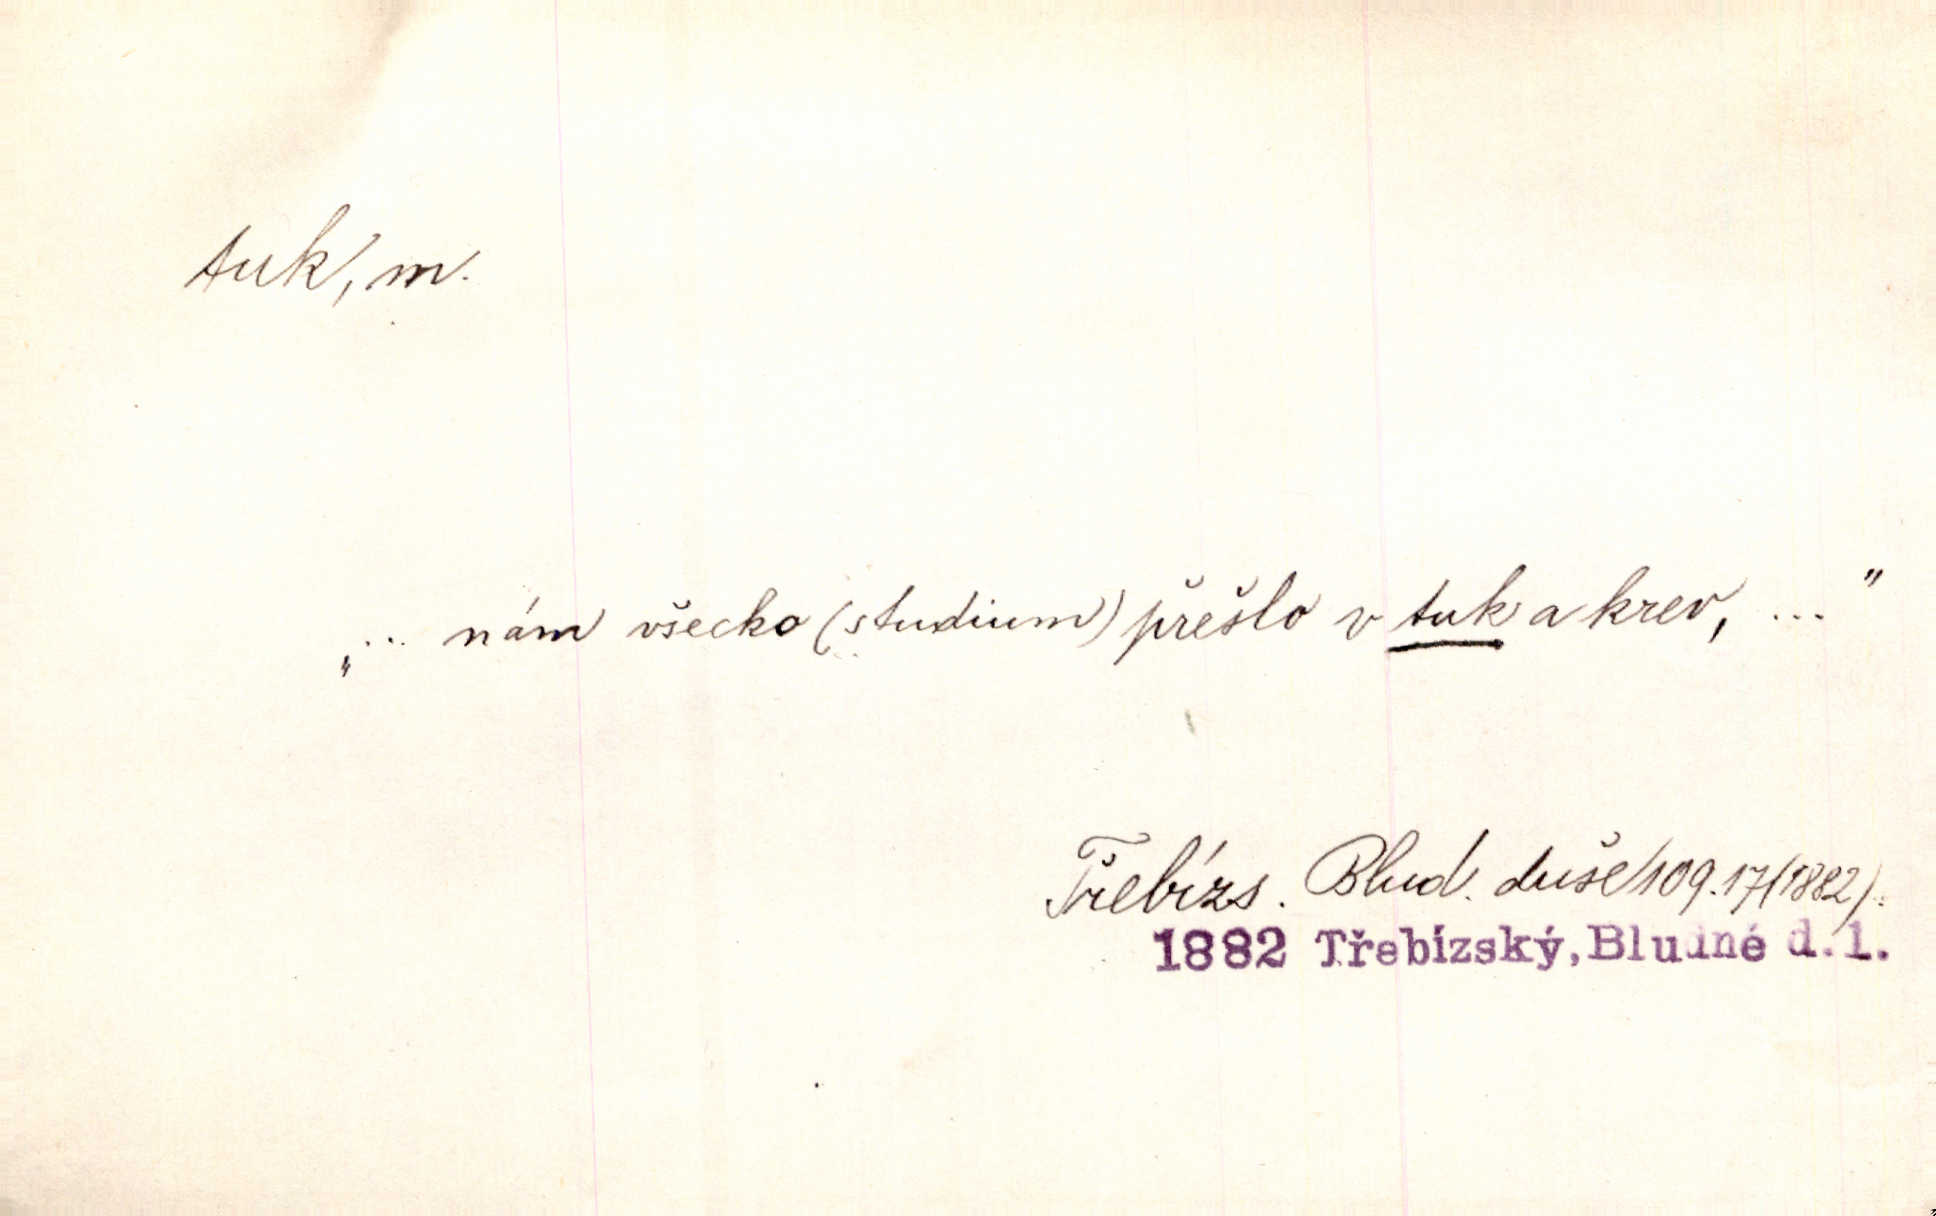 tuk, m.
„... nám všecko (studium) přešlo v tuk a krev, ..."
Třebízs. Blud. duše/109.17(1882).
1882 Třebízský, Bludné d. 1.